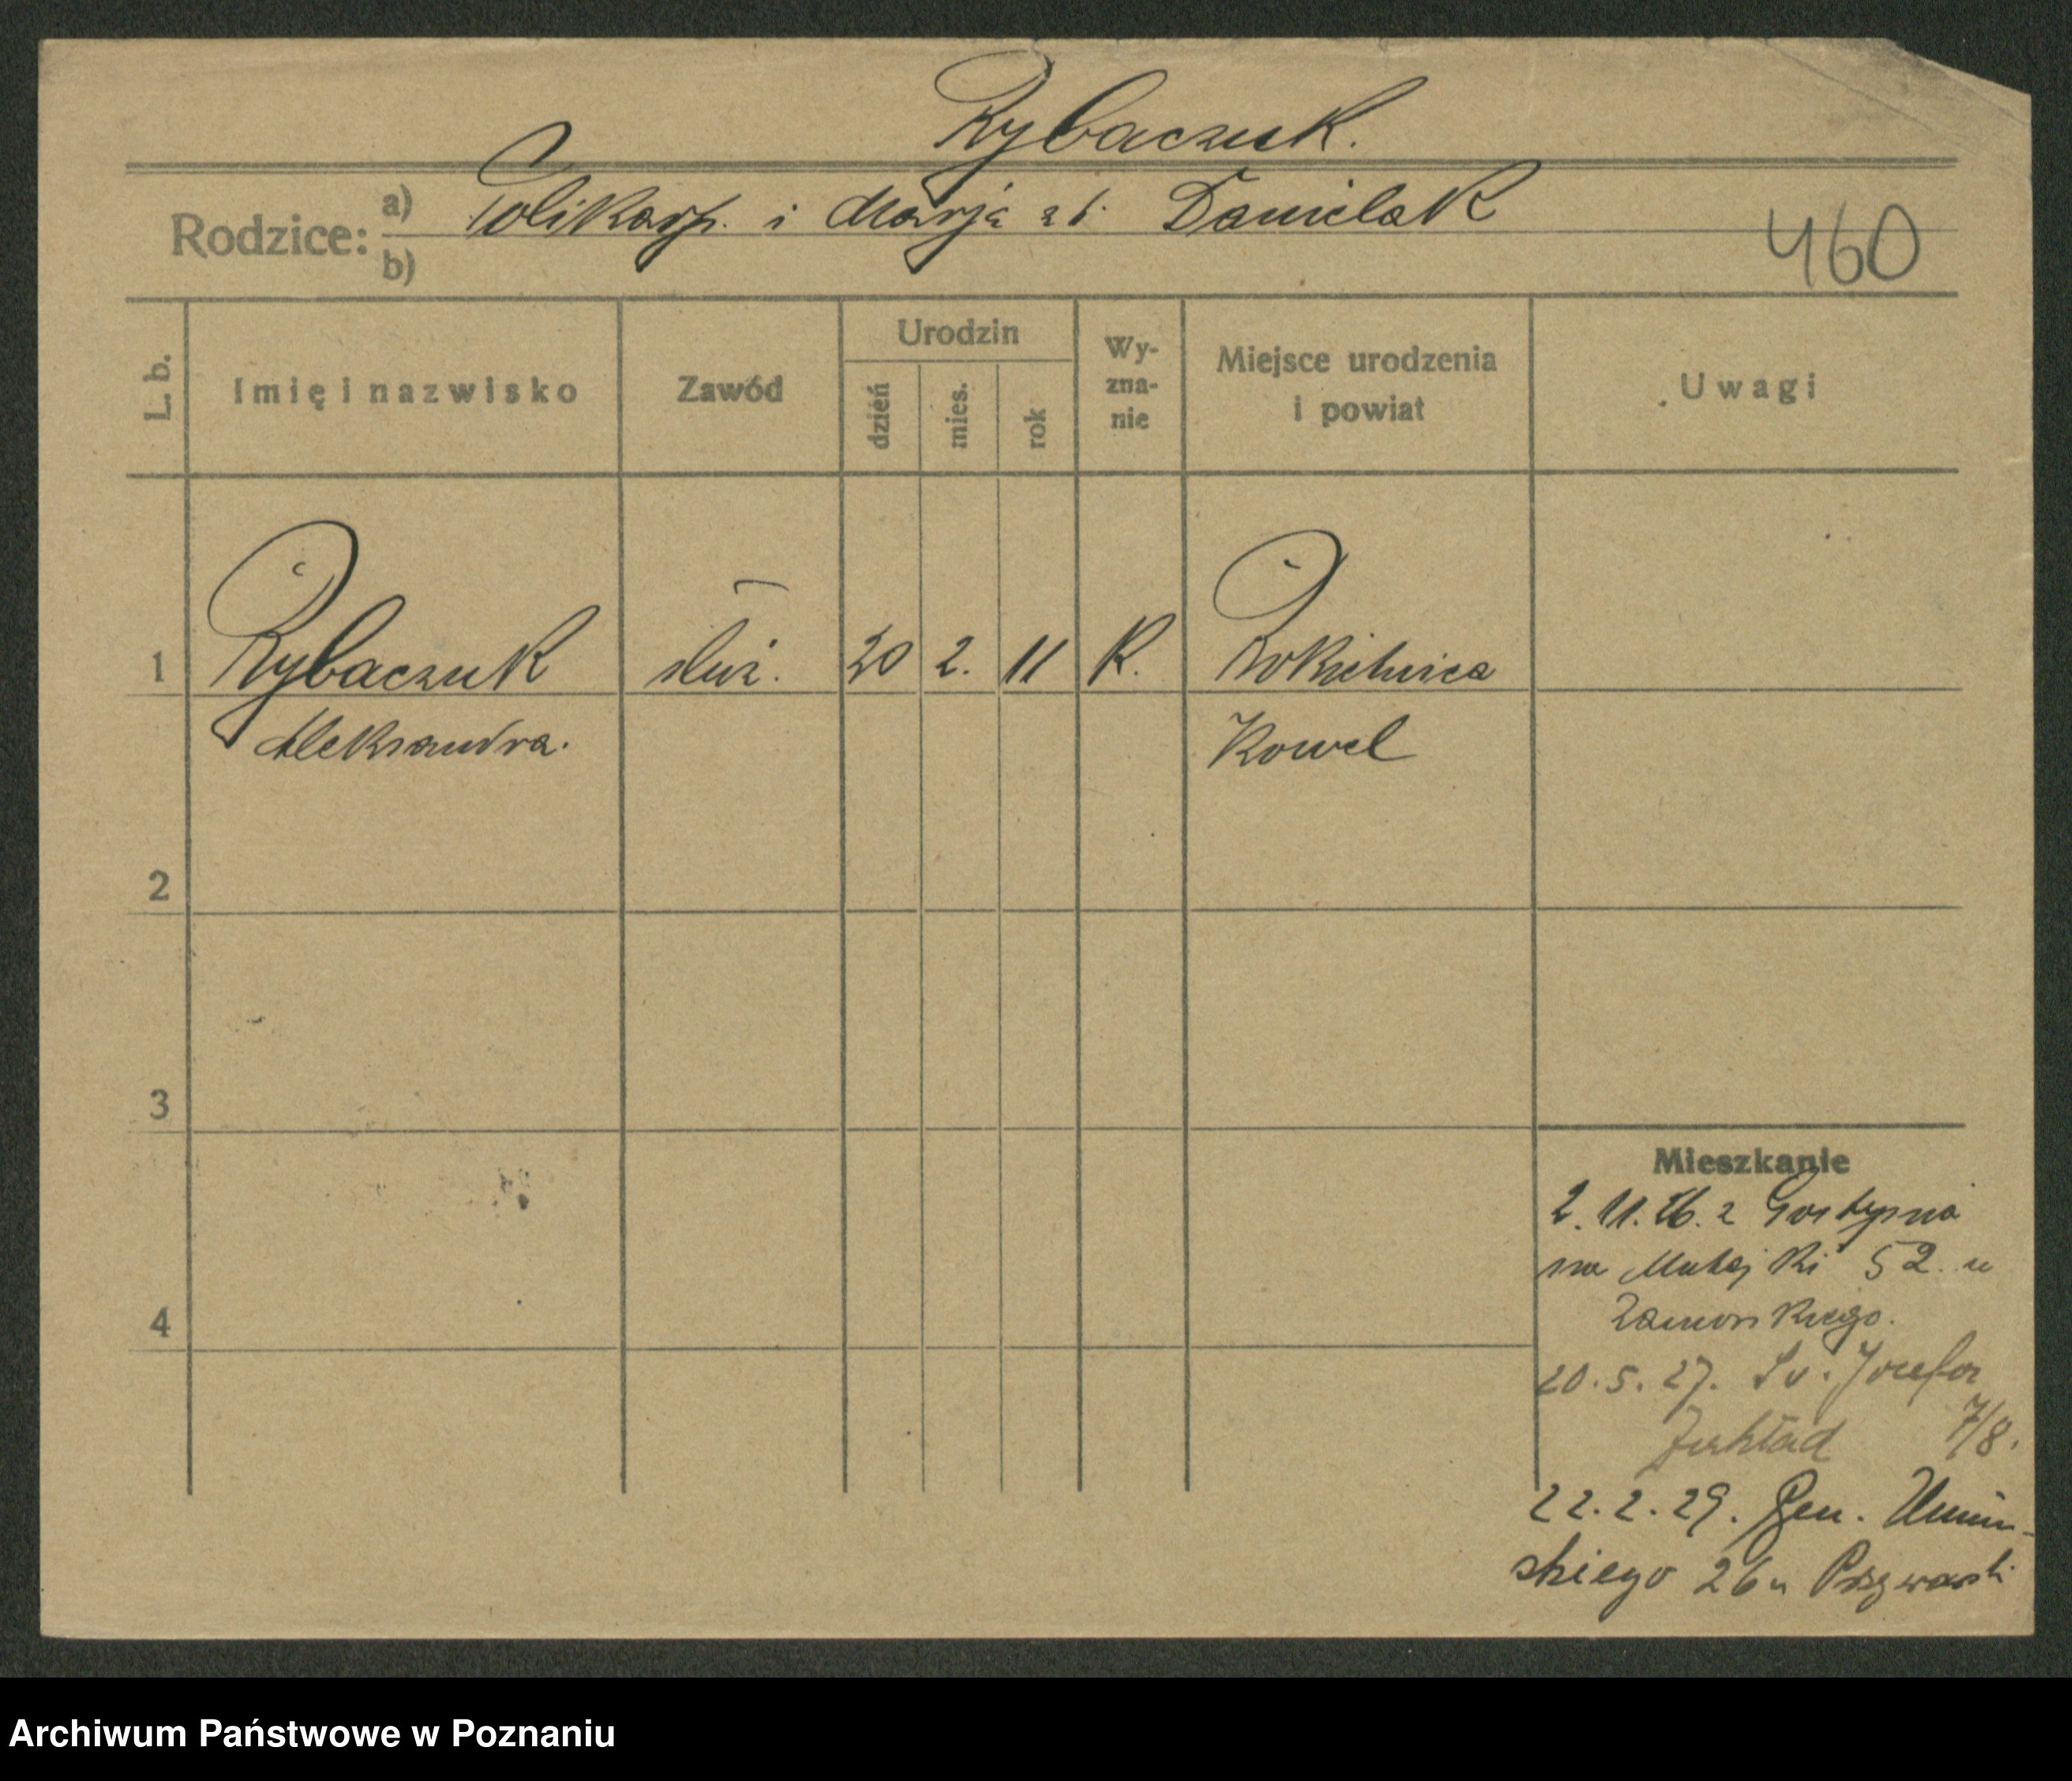 Rybaczuk.
Rodzice: a) Polikarp. i Marja z d. Danielak
b)
460
L. b.
Imię i nazwisko
Zawód
Urodzin
dzień
mies.
rok
Wy-
zna-
nie
Miejsce urodzenia
i powiat
Uwagi
1 Rybaczuk służ. 20 2. 11 K. Rokitnica
Aleksandra. Kowel
2
3
4
Mieszkanie
2. 11. 26. z Gostynia
na Matejki 52. u
Zamorskiego.
20. 5. 27. Św. Józefa
7/8.
22. 2. 29. Gen. Umiń-
skiego 26 u
Archiwum Państwowe w Poznaniu